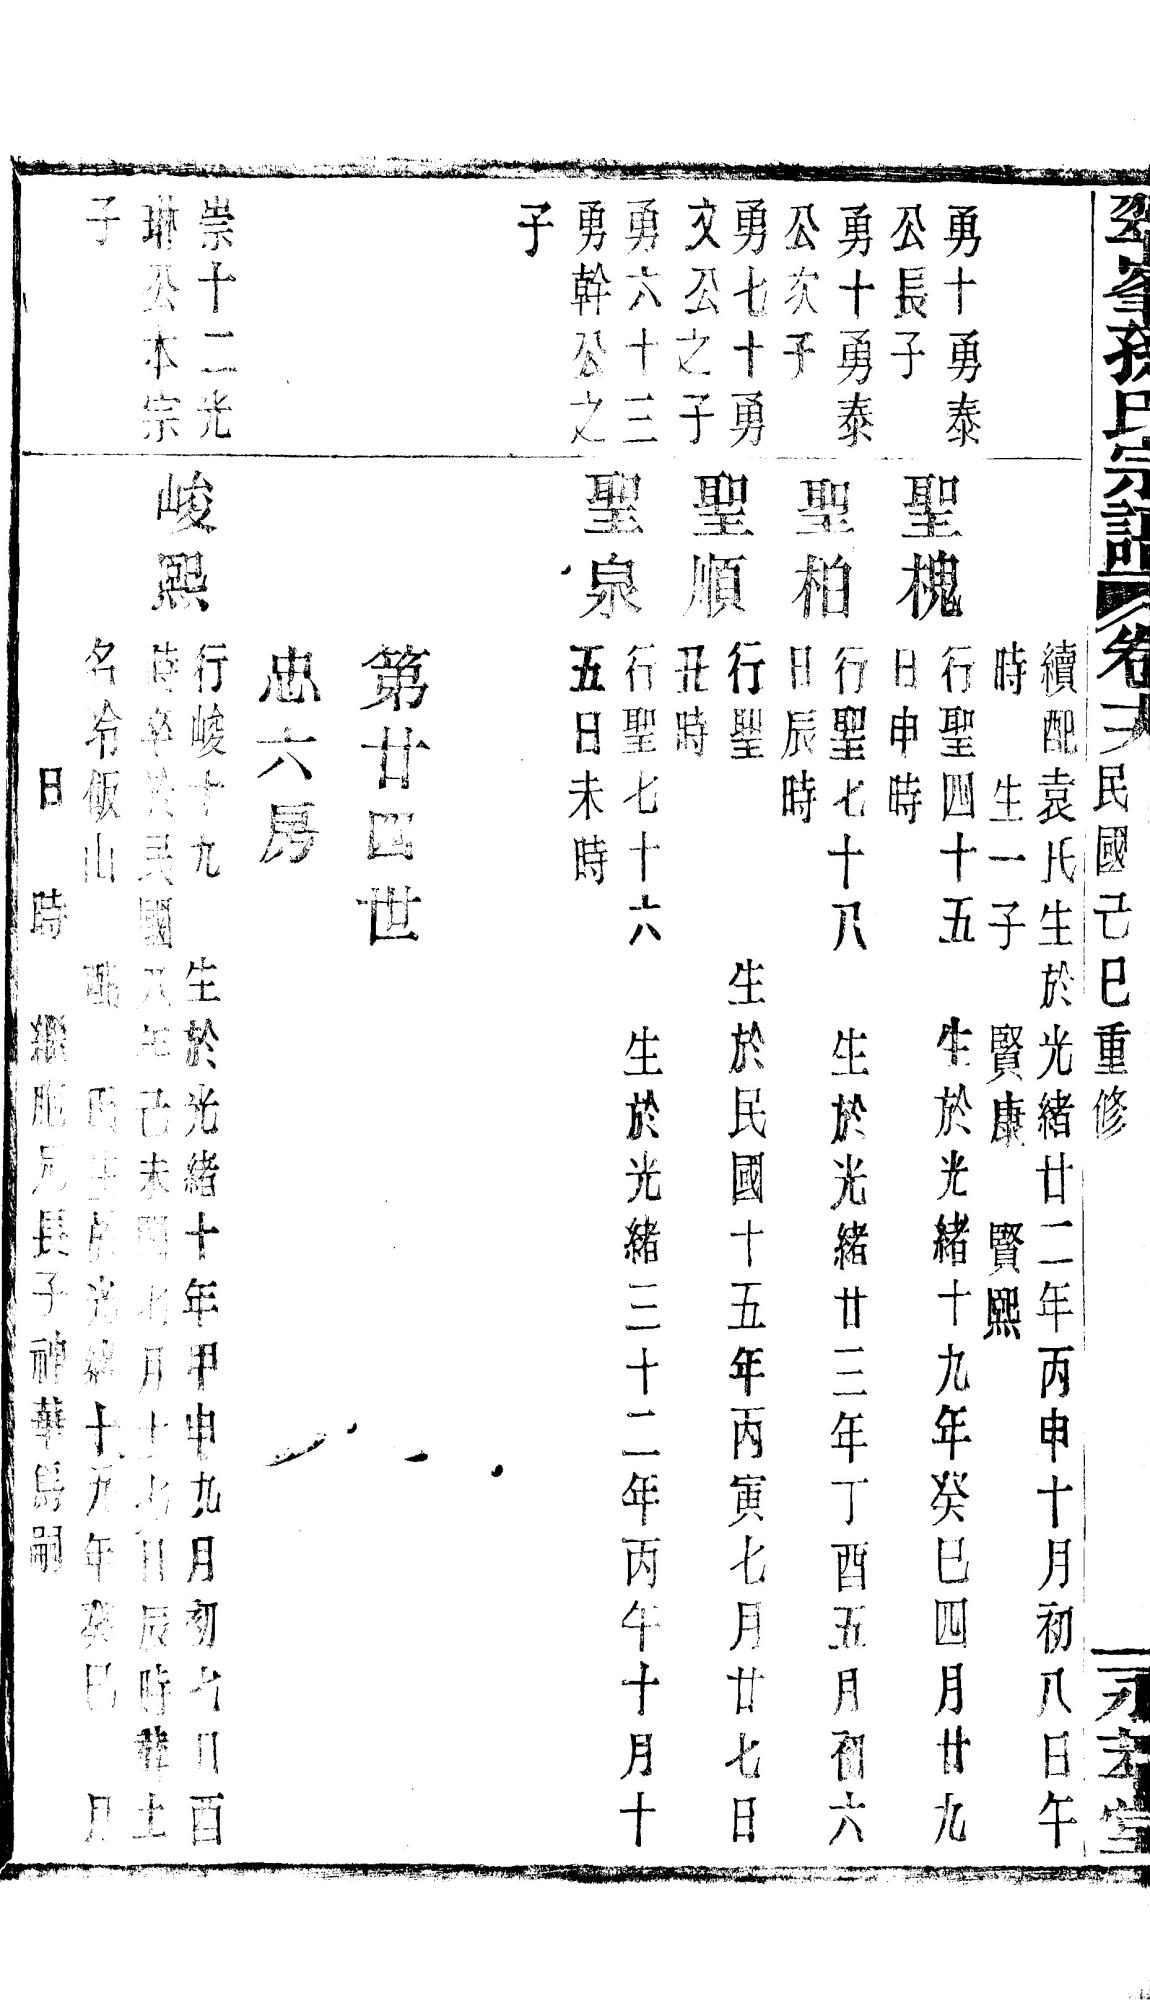 孫氏宗譜 卷 民國己巳重修 堂
續配袁氏生於光緒廿二年丙申十月初八日午
時 生一子 賢康 賢熙
勇十勇泰
公長子
聖槐
行聖四十五 生於光緒十九年癸巳四月廿九
日申時
勇十勇泰
公次子
聖柏
行聖七十八 生於光緒廿三年丁酉五月初六
日辰時
勇七十勇
文公之子
聖順
行聖 生於民國十五年丙寅七月廿七日
丑時
勇六十三
勇幹公之
子
聖泉
行聖七十六 生於光緒三十二年丙午十月十
五日未時
第廿四世
忠六房
崇十二光
琳公本宗
子
峻熙
行峻十九 生於光緒十年甲申九月初七日酉
時卒於民國八年己未閏七月十七日辰時葬土
名冷飯山 配 氏生於光緒十九年癸巳 月
日 時 繼胞兄長子神華爲嗣